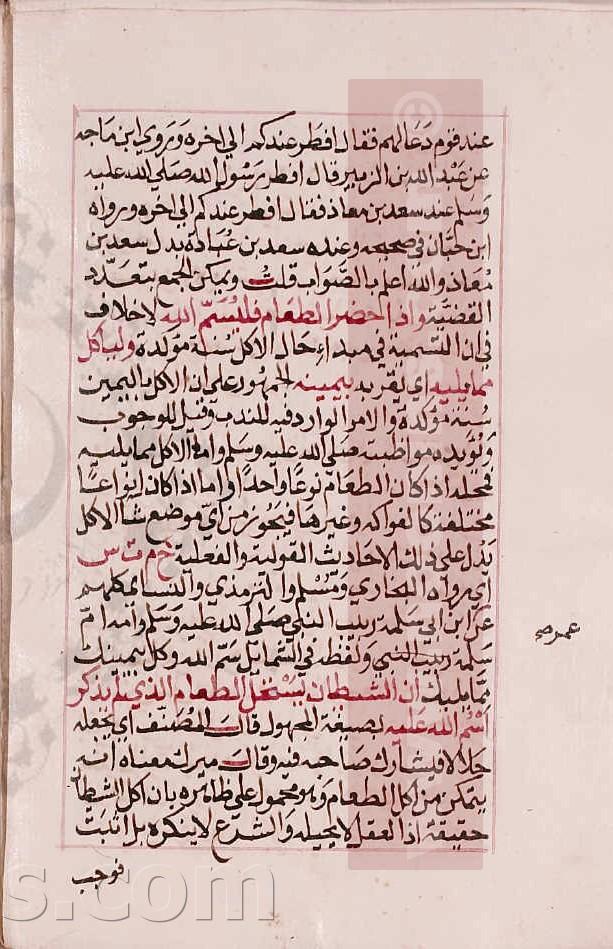 عند قوم دعا لهم فقال افطر عندكم الي اخره ويروي ابن ماجه
عن عبد الله بن الزبير قال افطر رسول الله صلي الله عليه
وسلم عند سعد بن معاذ فقال افطر عندكم الي اخره ورواه
ابن حبان في صحيحه وعنده سعد بن عبادة بدل سعد بن
معاذ والله اعلم بالصواب قلت ويمكن الجمع بتعدد
القضية واذا حضر الطعام فليسم الله لا خلاف
في ان التسمية في مبداء حال الاكل سنة مؤكدة ولياكل
مما يليه اي يقربه بيمينه الجمهور علي ان الاكل باليمين
سنة مؤكدة والامر الوارد فيه للندب وقيل للوجوب
ويؤيده مواظبته صلي الله عليه وسلم واما الاكل مما يليه
فمحله اذا كان الطعام نوعا واحدا واما اذا كان انواعا
مختلفة كالفواكه وغيرها فيجوز من اي موضع شا الاكل
يدل علي ذلك الاحاديث القولية والفعلية خ م ت س
اي رواه البخاري ومسلم والترمذي والنساي كلهم
عن ابن ابي سلمة ربيب النبي صلي الله عليه وسلم وامه ام
سلمة ربيب النبي ولفظه في الشمايل سم الله وكل بيمينك
مما يليك ان الشيطان يستحل الطعام الذي لم يذكر
اسم الله عليه بصيغة المجهول قال المصنف اي يجعله
حلالا فيشارك صاحبه فيه وقال ميرك معناه انه
يتمكن من اكل الطعام وهو محمول علي ظاهره بان اكل الشيطان
حقيقة اذ العقل لا يحيله والشرع لا ينكره بل اثبت
فوجب
عمر صح
s.com